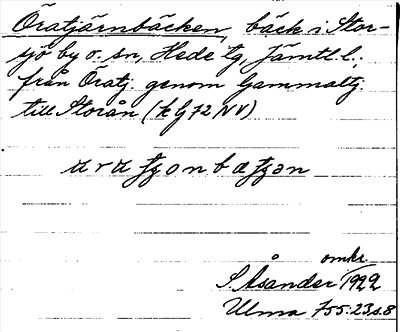 Öratjärnbäcken, bäck i Stor-
sjö by o. sn, Hede tg, Jämtl. l.;
från Öratj. genom Gammaltj.
till Storån (k G 72 NV)
omkr.
S. Åsander 1922
Ulma 755:23, s. 8